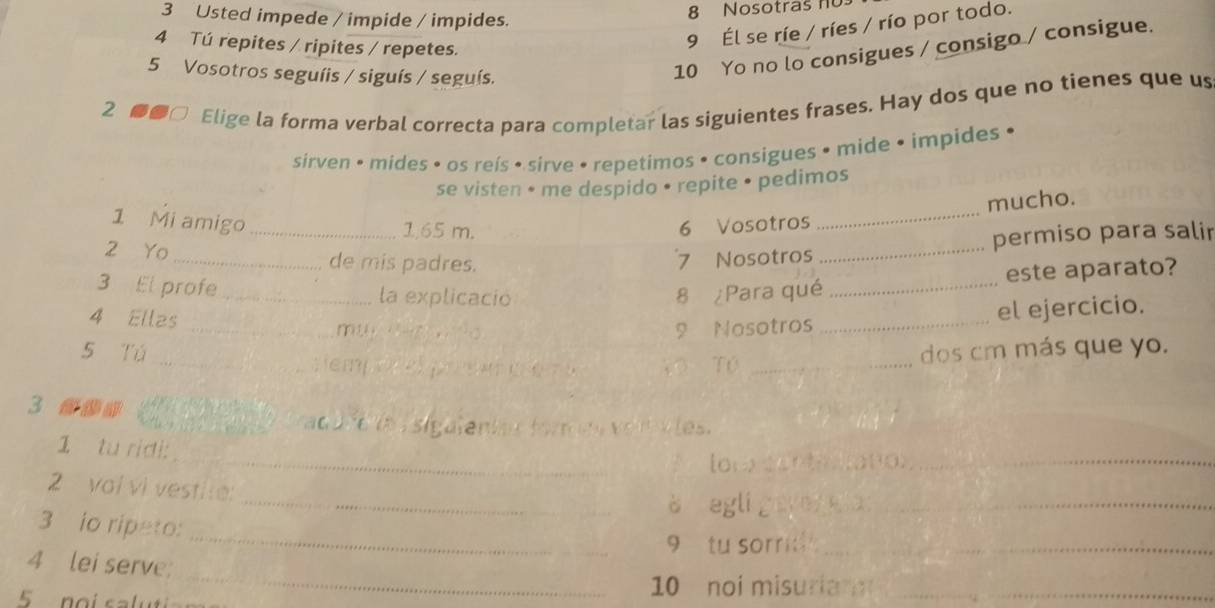 3 Usted impede / impide / impides.
4 Tú repites / ripites / repetes.
5 Vosotros seguíis / siguís / seguís.
8 Nosotras
9 Él se ríe / ríes / río por todo.
10 Yo no lo consigues / consigo / consigue.
2 Elige la forma verbal correcta para completar las siguientes frases. Hay dos que no tienes que us
sirven • mides • os reís • sirve • repetimos • consigues • mide • impides •
se visten • me despido • repite • pedimos
1 Mi amigo 1,65 m.
2 Yo de mis padres.
3 El profe la explicació
4 Ellas
5 Tú
6 Vosotros mucho.
7 Nosotros permiso para salir
8 ¿Para qué este aparato?
9 Nosotros el ejercicio.
Tú dos cm más que yo.
3
1 tu ridi:
2 voi vi vestite:
3 io ripeto:
4 lei serve:
5 noi
egli
9 tu sorridi
10 noi misuriamo